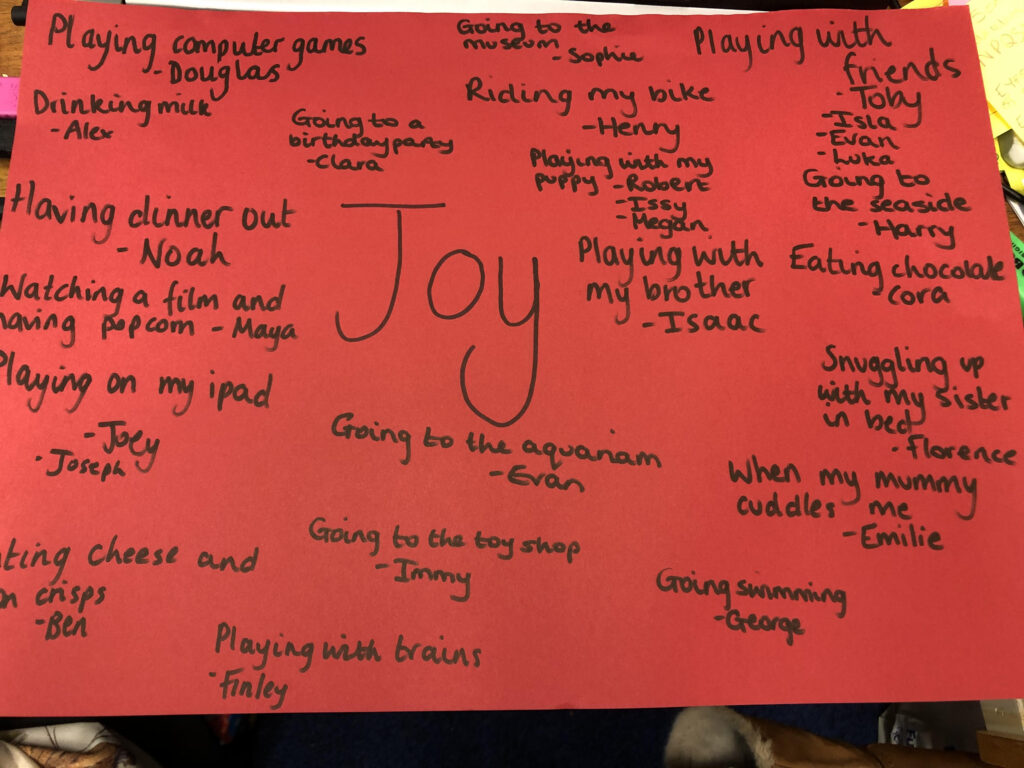 Playing computer games
- Douglas
Drinking milk
- Alex
Going to a
birthday party
- Clara
Going to the
museum
- Sophie
Riding my bike
- Henry
Playing with my
puppy - Robert
- Issy
- Megan
Playing with
friends
- Toby
- Isla
- Evan
- Luka
Going to
the seaside
- Harry
Having dinner out
- Noah
Joy
Playing with
my brother
- Isaac
Eating chocolate
- Cora
Watching a film and
having popcorn - Maya
Playing on my ipad
- Joey
- Joseph
Snuggling up
with my sister
in bed
- Florence
Going to the aquariam
- Evan
When my mummy
cuddles me
- Emilie
Going to the toy shop
- Immy
ating cheese and
on crisps
- Ben
Going swimming
- George
Playing with trains
- Finley